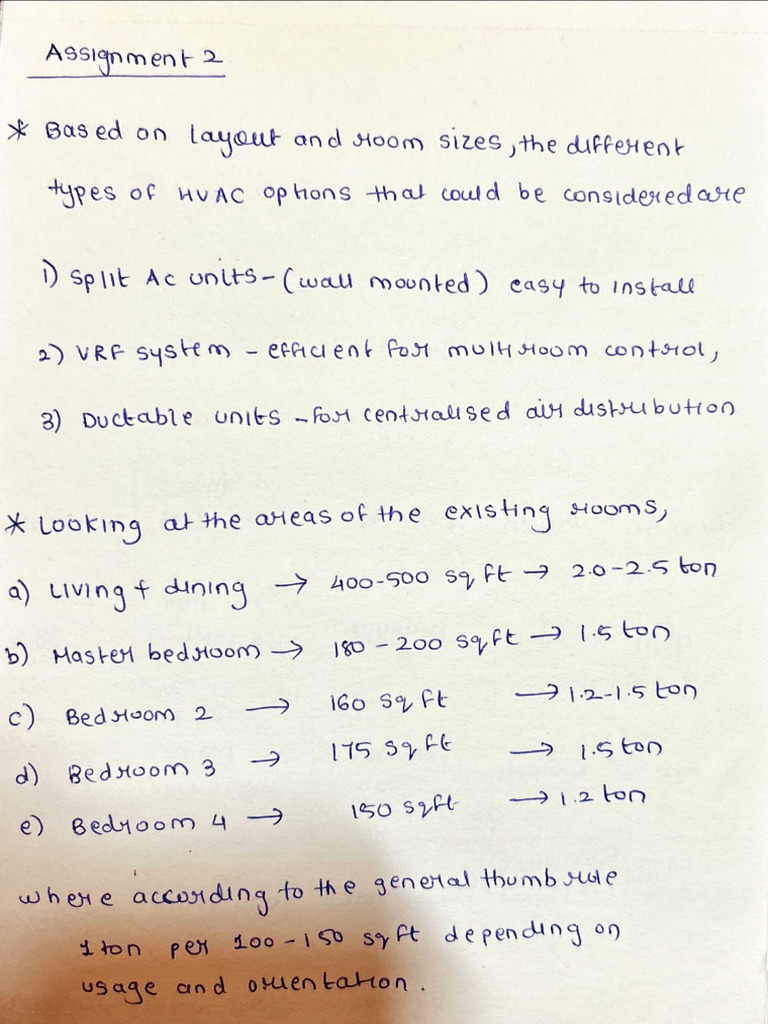 Assignment 2
* Based on layout and room sizes, the different
types of HVAC options that could be considered are
1) Split AC units - (wall mounted) easy to install
2) VRF system - efficient for multi room control,
3) Ductable units - for centralised air distribution
* Looking at the areas of the existing rooms,
a) Living + dining → 400-500 sq ft → 2.0-2.5 ton
b) Master bedroom → 180 - 200 sq ft → 1.5 ton
c) Bedroom 2 → 160 sq ft → 1.2-1.5 ton
d) Bedroom 3 → 175 sq ft → 1.5 ton
e) Bedroom 4 → 150 sq ft → 1.2 ton
where according to the general thumb rule
1 ton per 100-150 sq ft depending on
usage and orientation.